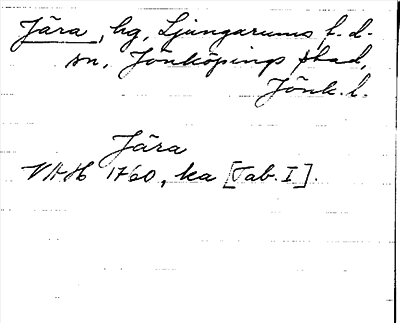 Jära, hg, Ljungarums f.d.
sn, Jönköpings stad,
Jönk.l.
Jära
VAH 1760, ka [Tab. I].